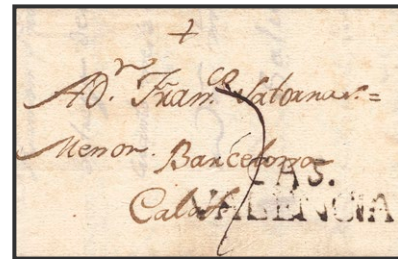 +
A Dn. Franco. Satornar =
Menor. Barcelona
AS.
Calaf VALENCIA